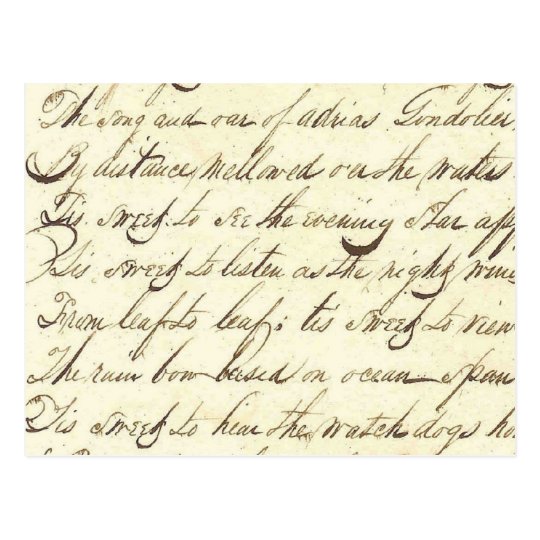 The song and oar of adrias Gondolier
By distance mellowed oer the waters
Tis sweet to see the evening star app
Tis sweet to listen as the night wind
From leaf to leaf; tis sweet to view
The rain bow based on ocean span
Tis sweet to hear the watch dogs ho